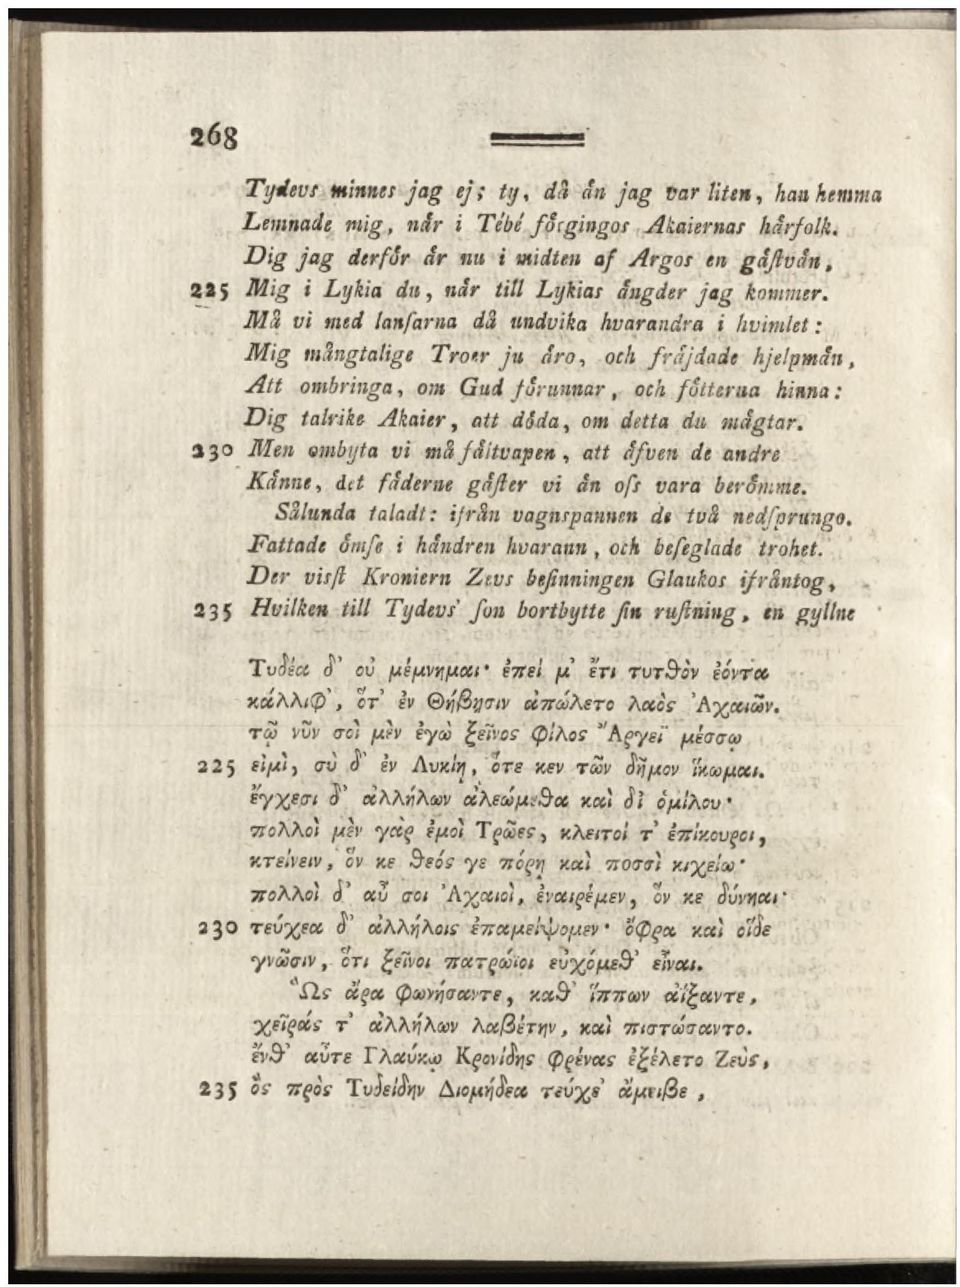 268
Tydevs minnes jag ej; ty, då än jag var liten, han hemma
Lemnade mig, när i Tébé förgingos Akaiernas härfolk.
Dig jag derför är nu i midten af Argos en gäſtvän,
225 Mig i Lykia du, när till Lykias ängder jag kommer.
Må vi med lanſarna då undvika hvarandra i hvimlet:
Mig mångtalige Troer ju äro, och fräjdade hjelpmän,
Att ombringa, om Gud förunnar, och fötterna hinna:
Dig talrike Akaier, att döda, om detta du mägtar.
230 Men ombyta vi må fältvapen, att äfven de andre
Känne, det fäderne gäſter vi än oſs vara berömme.
Sålunda taladt: ifrån vagnspannen de två nedſprungo.
Fattade ömſe i händren hvarann, och beſeglade trohet.
Der visſt Kroniern Zevs beſinningen Glaukos ifråntog,
235 Hvilken till Tydevs' ſon bortbytte ſin ruſtning, en gyllne
Τυδέα δ' οὐ μέμνημαι· ἐπεί μ' ἔτι τυτθὸν ἐόντα
κάλλιφ', ὅτ' ἐν Θήβῃσιν ἀπώλετο λαὸς Ἀχαιῶν.
τῷ νῦν σοὶ μὲν ἐγὼ ξεῖνος φίλος Ἄργεϊ μέσσῳ
225 εἰμὶ, σὺ δ' ἐν Λυκίῃ, ὅτε κεν τῶν δῆμον ἵκωμαι.
ἔγχεσι δ' ἀλλήλων ἀλεώμεθα καὶ δι' ὁμίλου·
πολλοὶ μὲν γὰρ ἐμοὶ Τρῶες, κλειτοί τ' ἐπίκουροι,
κτείνειν, ὅν κε θεός γε πόρῃ καὶ ποσσὶ κιχείω·
πολλοὶ δ' αὖ σοι Ἀχαιοὶ, ἐναιρέμεν, ὅν κε δύνηαι·
230 τεύχεα δ' ἀλλήλοις ἐπαμείψομεν· ὄφρα καὶ οἵδε
γνῶσιν, ὅτι ξεῖνοι πατρώϊοι εὐχόμεθ' εἶναι.
Ὣς ἄρα φωνήσαντε, καθ' ἵππων ἀΐξαντε,
χεῖράς τ' ἀλλήλων λαβέτην, καὶ πιστώσαντο.
ἔνθ' αὖτε Γλαύκῳ Κρονίδης φρένας ἐξέλετο Ζεὺς,
235 ὃς πρὸς Τυδείδην Διομήδεα τεύχε' ἄμειβε,